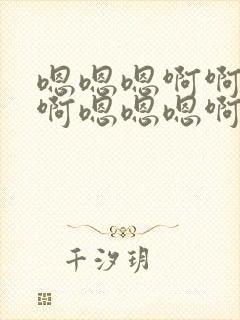 嗯嗯嗯啊啊
啊嗯嗯嗯啊
千汐玥